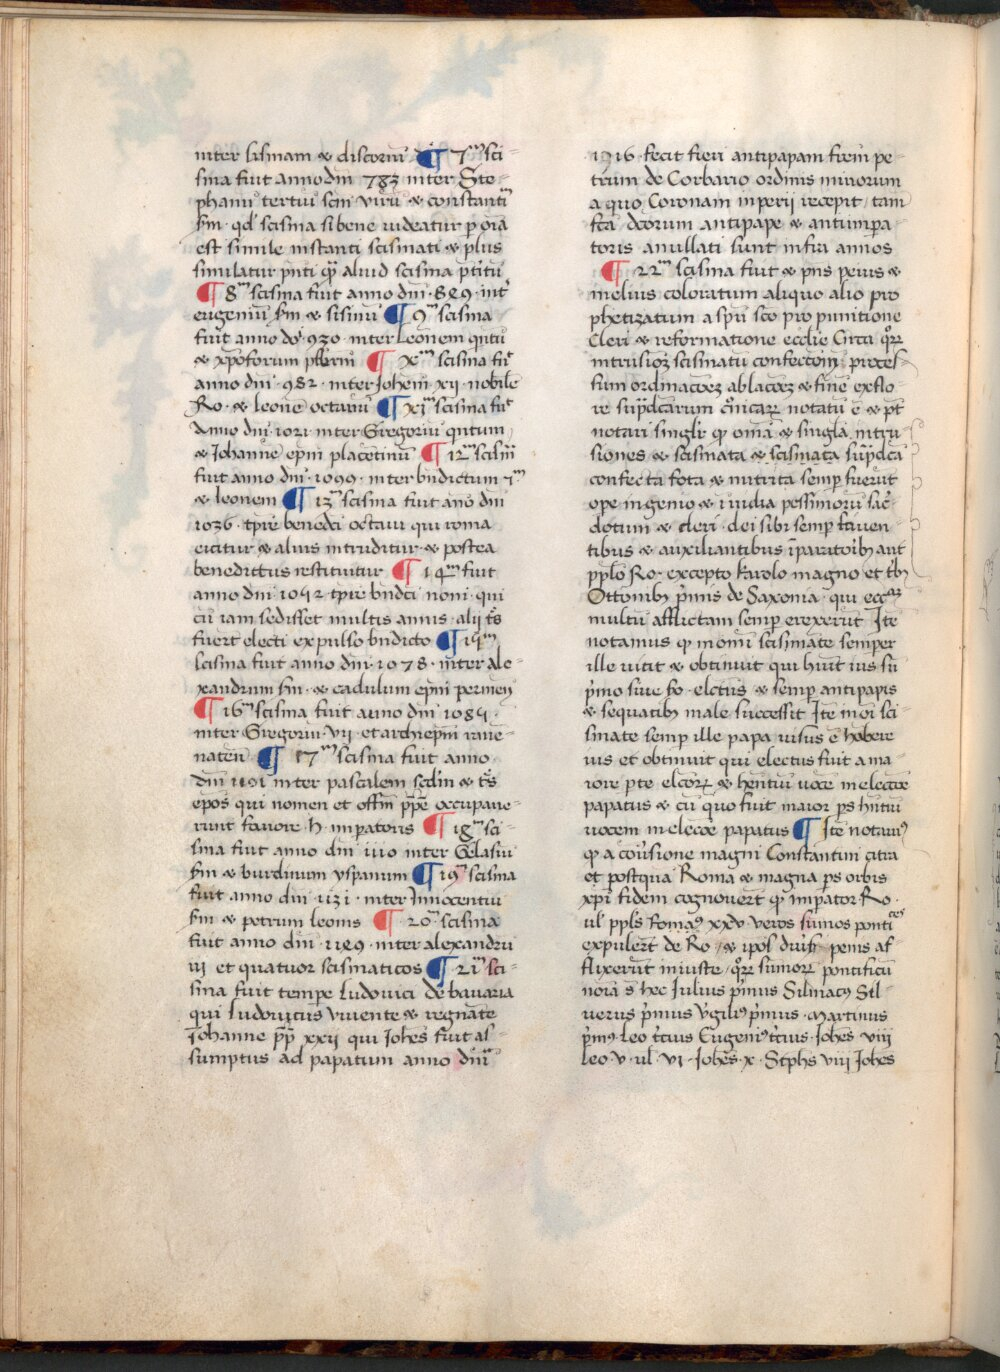 inter sismam & discoriū ¶ 7ᵐ sci-
sma fuit anno dni 783 inter Ste-
phanū tertiū scm virū & constantī
sm · qd scisma si bene videatur p oīa
est simile instanti scismati & plus
similatur pnti q̄ aliud scisma ptitū
¶ 8ᵐ scisma fuit anno dni · 889 · int
eugeniū sm & sisinū ¶ 9ᵐ scisma
fuit anno do 930 · inter Leonem quitū
& xpoforum pbrm ¶ Xᵐ scisma fit
anno dni · 982 · inter Johem xij · nobile
Ro · & leone octauū ¶ xjᵐ scisma fut
Anno dni · 1021 · inter Gregoriū quitum
& Johanne epm placetinū ¶ 12ᵐ scism
fuit anno dni · 1090 · inter bndictum 7ᵐ
& leonem ¶ 13ᵐ scisma fuit ano dni
1036 · tpre benedci octaui qui roma
eicitur & alius intruditur · & postea
benedictus restituitur ¶ 14ᵐ fuit
anno dni · 1042 · tpre bndci noni · qui
cū iam sedisset multis annis · alij ts
fuert electi expulso bndicto ¶ 15ᵐ
scisma fuit anno dni · 1078 · inter ale-
xandrum sm · & cadulum epm permen
¶ 16ᵐ scisma fuit anno dni 1084 ·
inter Gregoriū · vij · et archiepm raue-
naten ¶ 17ᵐ scisma fuit anno
dni 1101 inter pascalem scdm & ts
epos qui nomen et offm ppe occupaue-
runt fauore · h · imperatoris ¶ 18ᵐ sci-
sma fuit anno dni 1110 inter Gelasiū
sm & burdinum yspanum ¶ 19ᵐ scisma
fuit anno dni 1131 · inter Innocentiū
sm & petrum leonis ¶ 20ᵐ scisma
fuit anno dni · 1189 · inter alexandrū
iij et quatuor scismaticos ¶ 21ᵐ sci-
sma fuit tempe Ludouici de bauaria
qui Ludouicus viuente & regnāte
Johanne pp xxij qui Johes fuit as-
sumptus ad papatum anno dni
1316 · fecit fieri antipapam frem pe-
trum de Corbario ordinis minorum
a quo Coronam inperij recepit / tam
fca dcorum antipape & antimpa-
toris anullati sunt infra annos
¶ 22ᵐ scisma fuit & pns peius &
melius coloratum aliquo alio pro
phetizatum a spu sco pro punitione
Cleri & reformatione ecclie Circa
intrusioz scismatū confectoīm proces-
sum ordinacoez ablacoez & fine exflo-
re sup̄dcarum cronicar notatū e & pt
notari singlr q omā & singla intru
siones & scismata & scismata sup̄dcā
confecta fota & nutrita semp fuerūt
ope ingenio & inuidia pessimorū sac-
dotum & cleri · dei sibi semp fauen-
tibus & auxiliantibus ipatoribȝ aut
pplo Ro · excepto karolo magno et tbȝ
Ottonibȝ pmis de Saxonia · qui ecc
multū afflictam semp erexerūt Ite
notamus q in omni scismate semper
ille vicit & obtinuit qui huit ius sū
pmo siue fo · electus & semp antipapis
& sequatibȝ male successit Ite in oi sci-
smate semp ille papa visus e habere
ius et obtinuit qui electus fuit a ma-
iore pte elcor & hentiū voce in elecce
papatus & cū quo fuit maior ps hntiū
vocem in elecce papatus ¶ Ite notamꝰ
q a couisione magni Constantini citra
et postqua Roma & magna ps orbis
xpi fidem cognouert q imperator Ro ·
ul ppls Romaꝰ xxv veros sūmos ponti
expulert de Ro / & ipos diuis penis af-
flixerunt iniuste / qr sumor pontificū
noia s hec Julius pmus Silmacȝ Sil-
uerus pmus vgiliꝰ pmus · Martinus
pmꝰ Leo tcius Eugeniꝰ tcius · Johes · viij
Leo · v · ul · vi · Johes · x · Stphs viij Johes